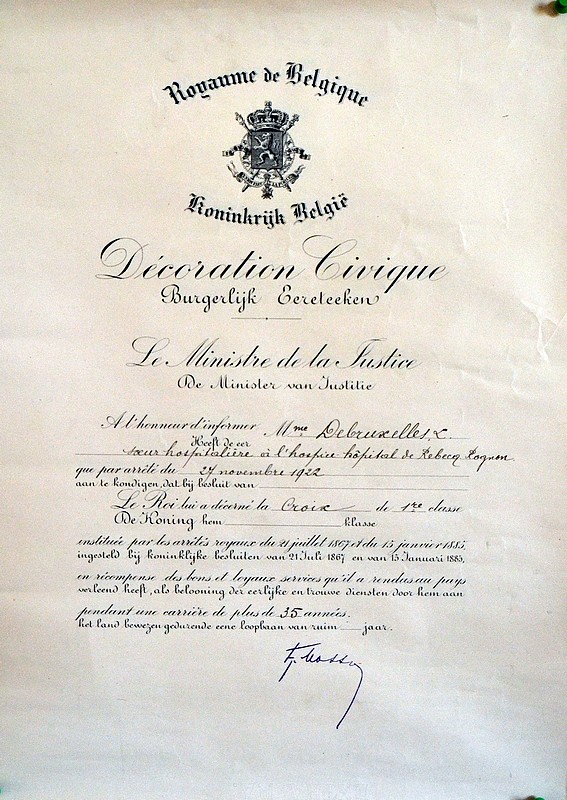 Royaume de Belgique
Koninkrijk België
Décoration Civique
Burgerlijk Eereteeken
Le Ministre de la Justice
De Minister van Justitie
A l'honneur d'informer Mme Debruxelles, L.
Heeft de eer
sœur hospitalière à l'hospice hôpital de Rebecq Rognon
que par arrêté du 27 novembre 1922
aan te kondigen, dat bij besluit van
Le Roi lui a décerné la Croix de 1re classe
De Koning hem klasse
instituée par les arrêtés royaux du 21 juillet 1867 et du 15 janvier 1885,
ingesteld bij koninklijke besluiten van 21 Juli 1867 en van 15 Januari 1885,
en récompense des bons et loyaux services qu'il a rendus au pays
verleend heeft, als belooning der eerlijke en trouwe diensten door hem aan
pendant une carrière de plus de 35 années.
het land bewezen gedurende eene loopbaan van ruim jaar.